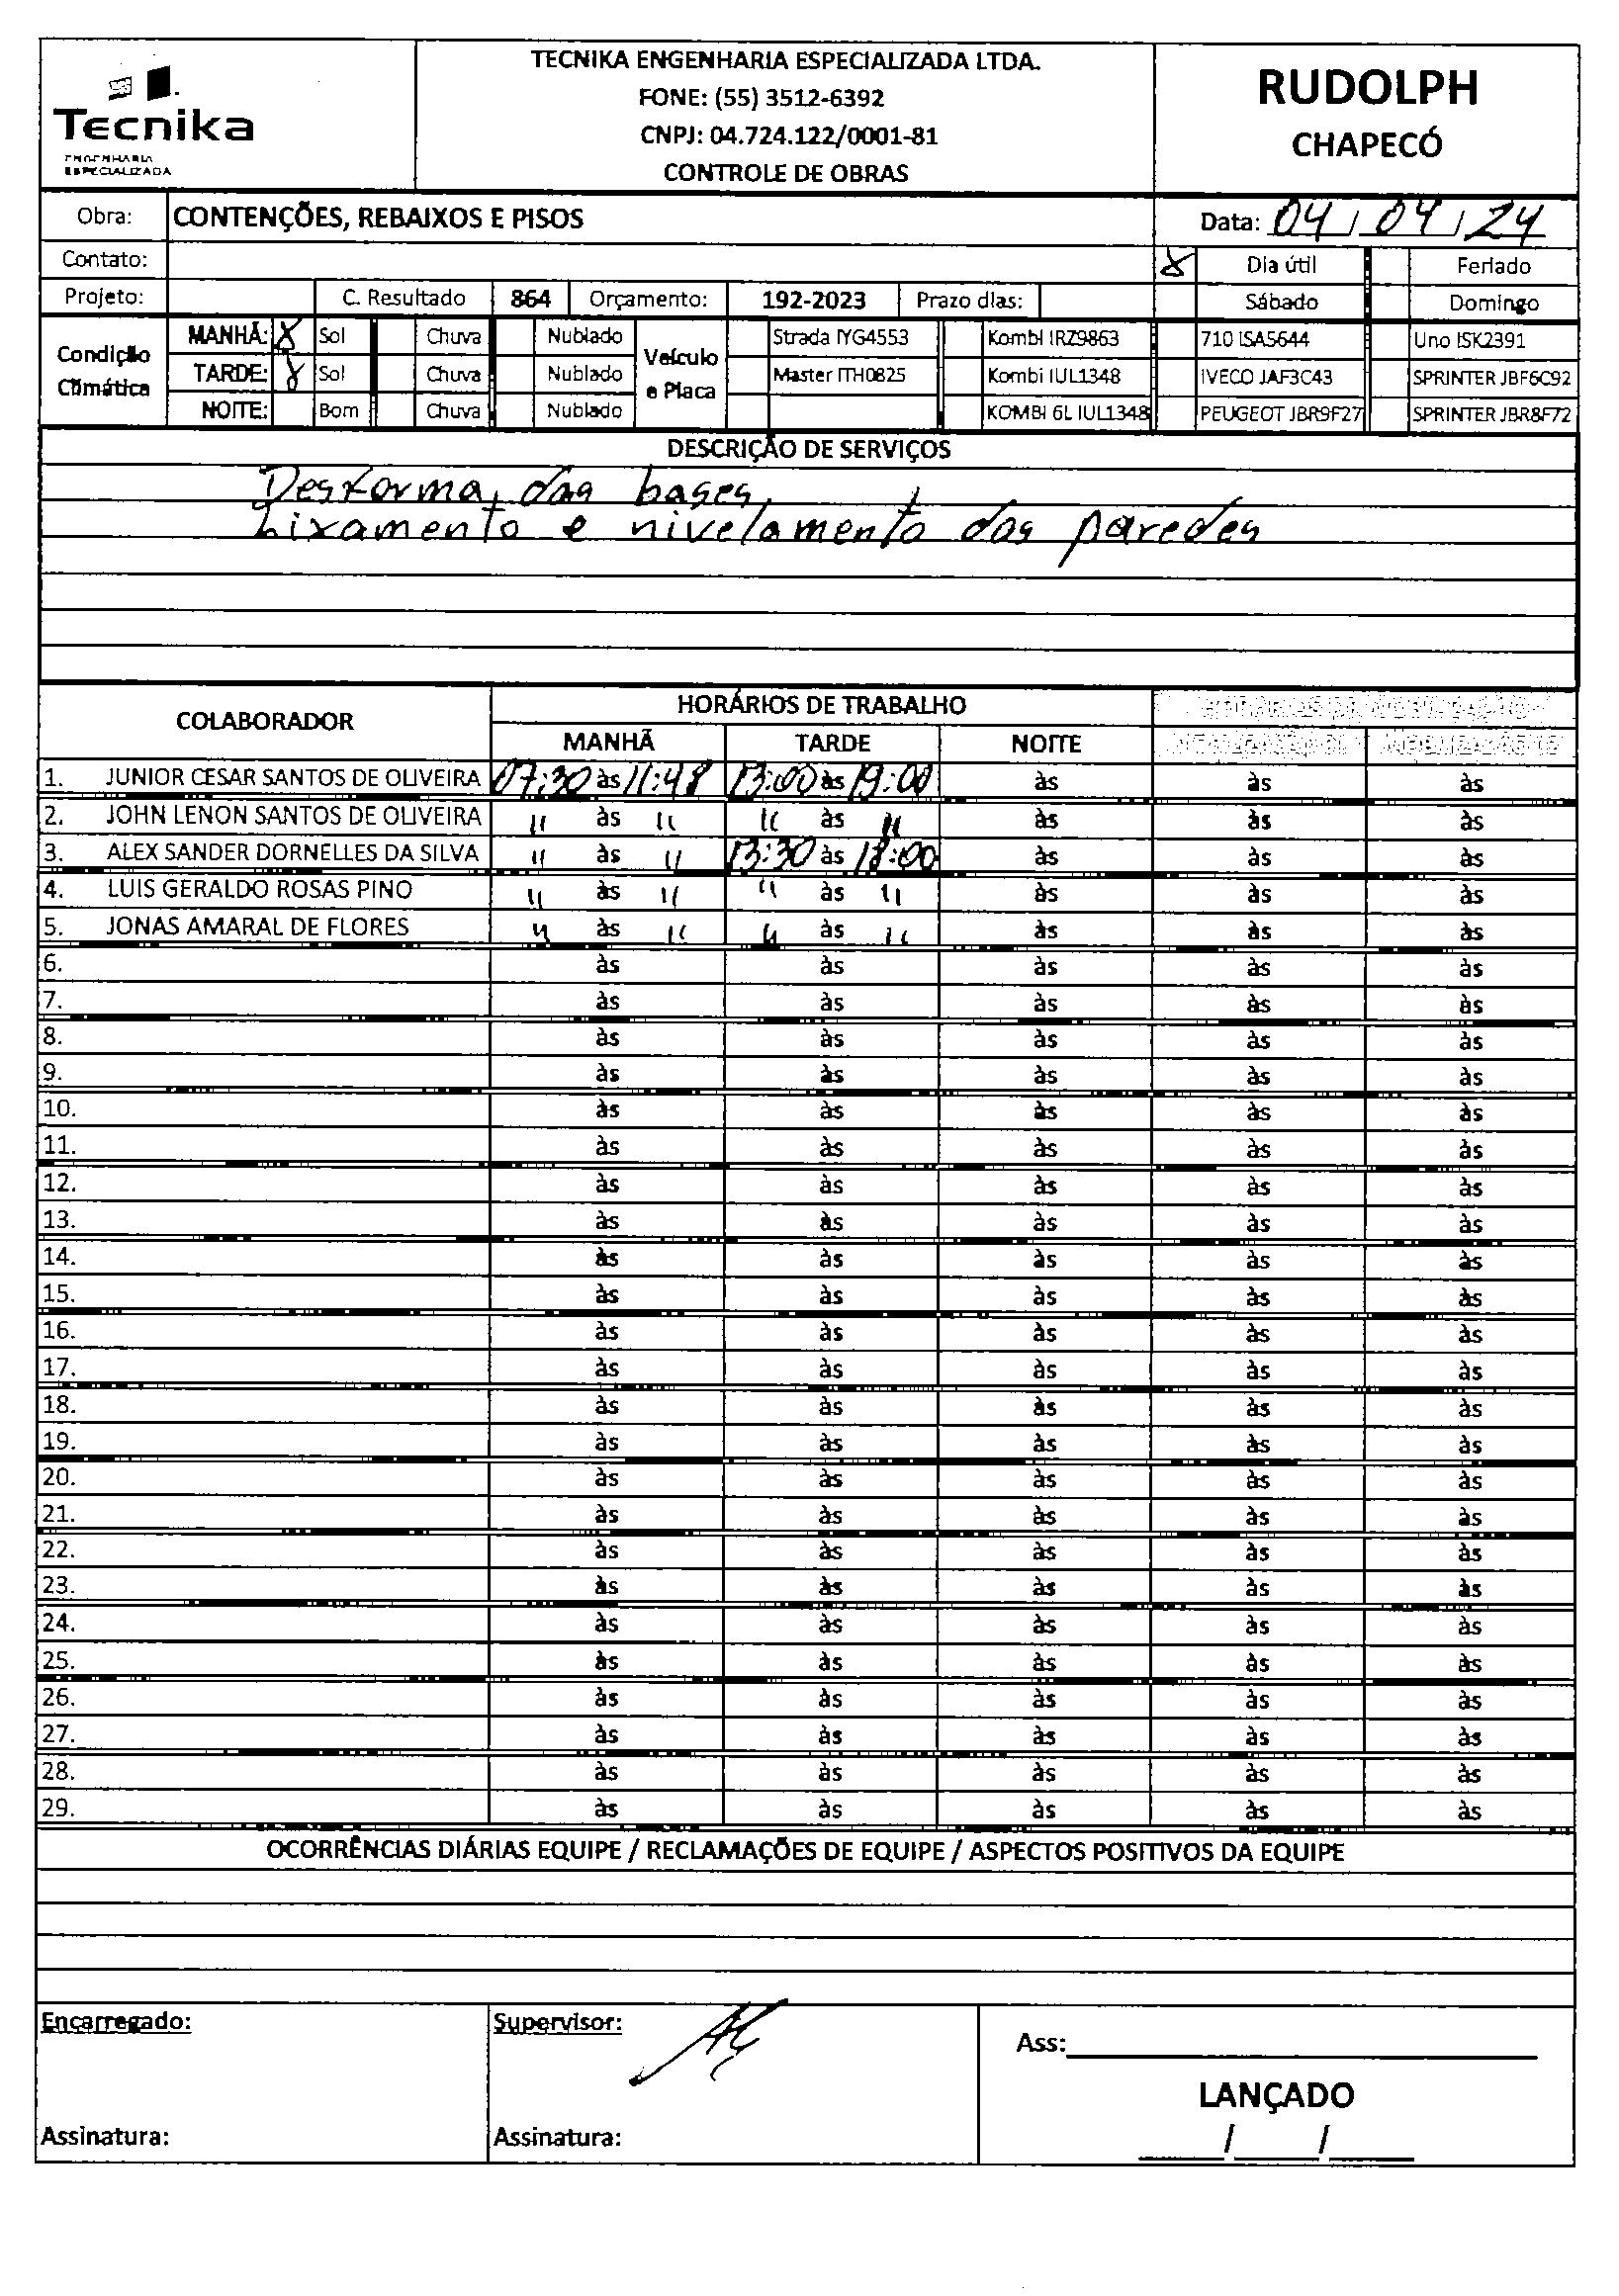 Tecnika
ENGENHARIA
ESPECIALIZADA
TECNIKA ENGENHARIA ESPECIALIZADA LTDA.
FONE: (55) 3512-6392
CNPJ: 04.724.122/0001-81
CONTROLE DE OBRAS
RUDOLPH
CHAPECÓ
Obra: CONTENÇÕES, REBAIXOS E PISOS Data: 04/04/24
Contato: X Dia útil Feriado
Projeto: C. Resultado 864 Orçamento: 192-2023 Prazo dias: Sábado Domingo
Condição Climática
MANHÃ: X Sol Chuva Nublado
TARDE: X Sol Chuva Nublado
NOITE: Bom Chuva Nublado
Veículo e Placa
Strada IYG4553 Kombi IRZ9863 710 ISA5644 Uno ISK2391
Master ITH0825 Kombi IUL1348 IVECO JAF3C43 SPRINTER JBF6C92
KOMBI 6L IUL1348 PEUGEOT JBR9F27 SPRINTER JBR8F72
DESCRIÇÃO DE SERVIÇOS
Desforma, das bases,
Lixamento e nivelamento das paredes
COLABORADOR HORÁRIOS DE TRABALHO
MANHÃ TARDE NOITE
1. JUNIOR CESAR SANTOS DE OLIVEIRA 07:30 às 11:48 13:00 às 19:00 às às às
2. JOHN LENON SANTOS DE OLIVEIRA " às " " às " às às às
3. ALEX SANDER DORNELLES DA SILVA " às " 13:30 às 18:00 às às às
4. LUIS GERALDO ROSAS PINO " às " " às " às às às
5. JONAS AMARAL DE FLORES " às " " às " às às às
6. às às às às às
7. às às às às às
8. às às às às às
9. às às às às às
10. às às às às às
11. às às às às às
12. às às às às às
13. às às às às às
14. às às às às às
15. às às às às às
16. às às às às às
17. às às às às às
18. às às às às às
19. às às às às às
20. às às às às às
21. às às às às às
22. às às às às às
23. às às às às às
24. às às às às às
25. às às às às às
26. às às às às às
27. às às às às às
28. às às às às às
29. às às às às às
OCORRÊNCIAS DIÁRIAS EQUIPE / RECLAMAÇÕES DE EQUIPE / ASPECTOS POSITIVOS DA EQUIPE
Encarregado: Supervisor: Ass:
LANÇADO
Assinatura: Assinatura: / /